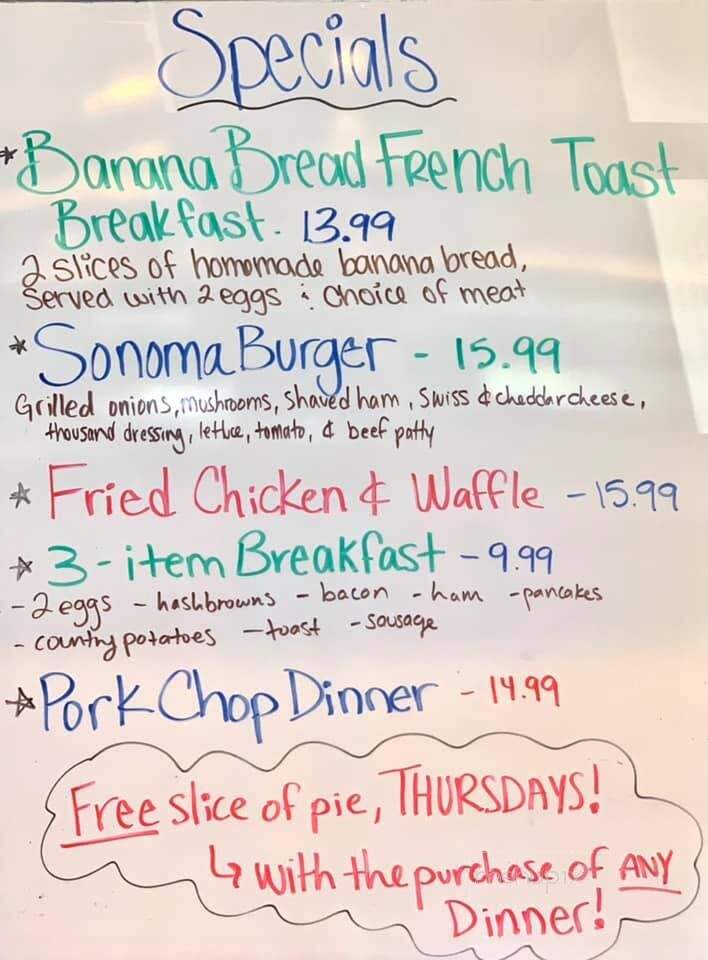 Specials
* Banana Bread French Toast
Breakfast. 13.99
2 slices of homomade banana bread,
Served with 2 eggs & Choice of meat
* Sonoma Burger - 15.99
Grilled onions, mushrooms, Shaved ham, Swiss & cheddar cheese,
thousand dressing, lettuce, tomato, & beef patty
* Fried Chicken & Waffle - 15.99
* 3-item Breakfast - 9.99
- 2 eggs - hashbrowns - bacon - ham - pancakes
- country potatoes - toast - sausage
* Pork Chop Dinner - 14.99
Free slice of pie, THURSDAYS!
↳ with the purchase of ANY
Dinner!